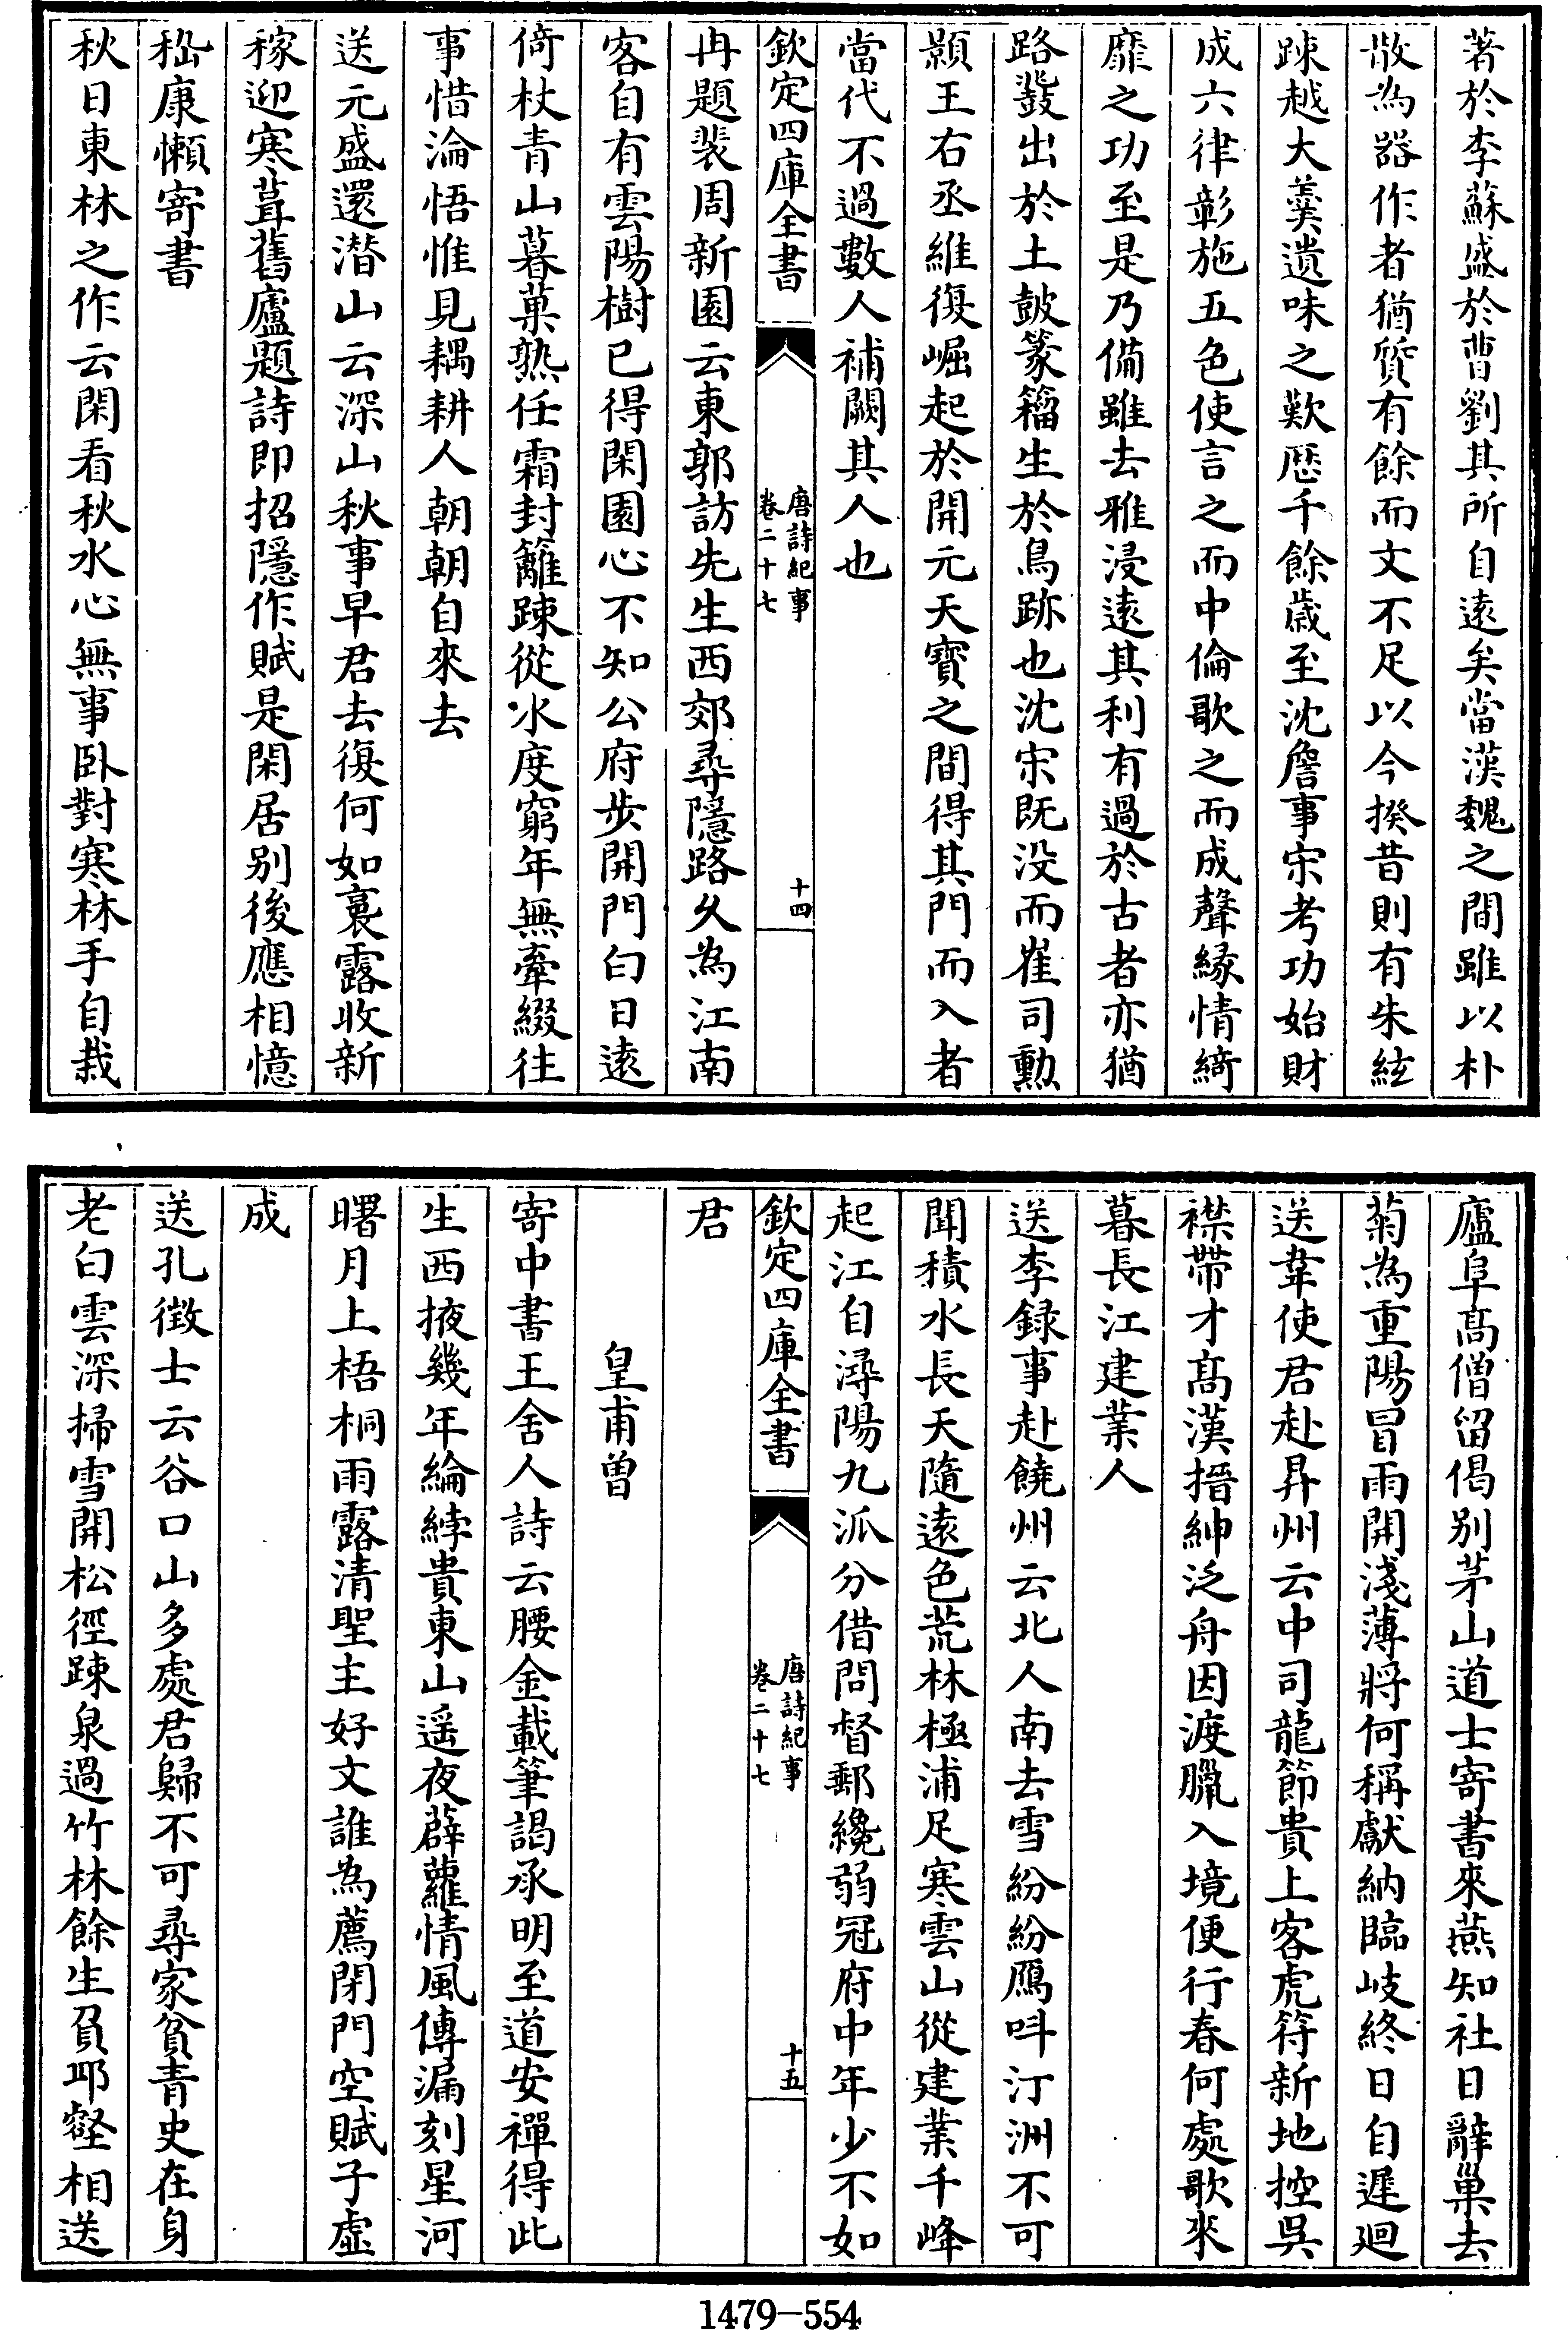 著於李蘇盛於曹劉其所自遠矣當漢魏之間雖以朴
散為器作者猶質有餘而文不足以今揆昔則有朱絃
踈越大羮遺味之歎歴千餘歳至沈詹事宋考功始財
成六律彰施五色使言之而中倫歌之而成聲緣情綺
靡之功至是乃備雖去雅浸遠其利有過於古者亦猶
路鼗出於土鼓篆籀生於鳥跡也沈宋既没而崔司勲
顥王右丞維復崛起於開元天寳之間得其門而入者
當代不過數人補闕其人也
欽定四庫全書
唐詩紀事
卷二十七
十四
冉題裴周新園云東郭訪先生西郊尋隱路久為江南
客自有雲陽樹已得閑園心不知公府步開門白日遠
倚杖青山暮菓熟任霜封籬踈從水度窮年無牽綴往
事惜淪悟惟見耦耕人朝朝自來去
送元盛還潛山云深山秋事早君去復何如裛露收新
稼迎寒葺舊廬題詩即招隱作賦是閑居别後應相憶
嵇康懶寄書
秋日東林之作云閑看秋水心無事卧對寒林手自栽
廬阜髙僧留偈别茅山道士寄書來燕知社日辭巢去
菊為重陽冒雨開淺薄將何稱獻納臨岐終日自遲迴
送韋使君赴昇州云中司龍節貴上客虎符新地控吳
襟帶才髙漢搢紳泛舟因渡臘入境便行春何處歌來
暮長江建業人
送李録事赴饒州云北人南去雪紛紛鴈呌汀洲不可
聞積水長天隨遠色荒林極浦足寒雲山從建業千峰
起江自潯陽九派分借問督郵纔弱冠府中年少不如
欽定四庫全書
唐詩紀事
卷二十七
十五
君
皇甫曽
寄中書王舍人詩云腰金載筆謁承明至道安禪得此
生西掖幾年綸綍貴東山遥夜薜蘿情風傳漏刻星河
曙月上梧桐雨露清聖主好文誰為薦閉門空賦子虚
成
送孔徴士云谷口山多處君歸不可尋家貧青史在身
老白雲深掃雪開松徑踈泉過竹林餘生負邱壑相送
1479-554